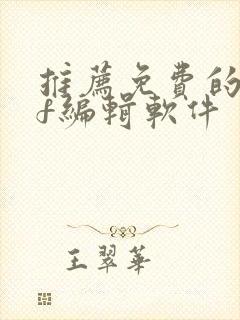 推薦免費的
f編輯軟件
王翠華